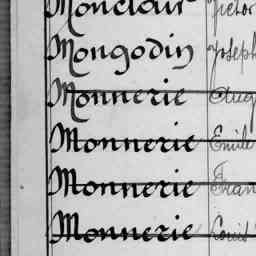 Monclour Victor
Mongodin Joseph
Monnerie Aug
Monnerie Emile
Monnerie Fran
Monnerie Louis